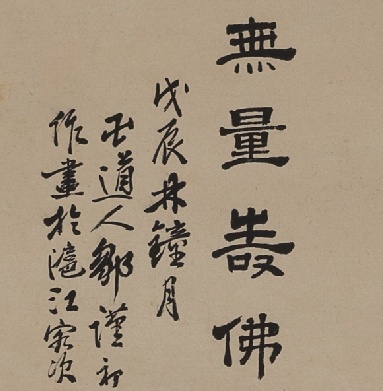 無量壽佛
戊辰林鐘月
道人鄒謹初
作畫於滬江客次